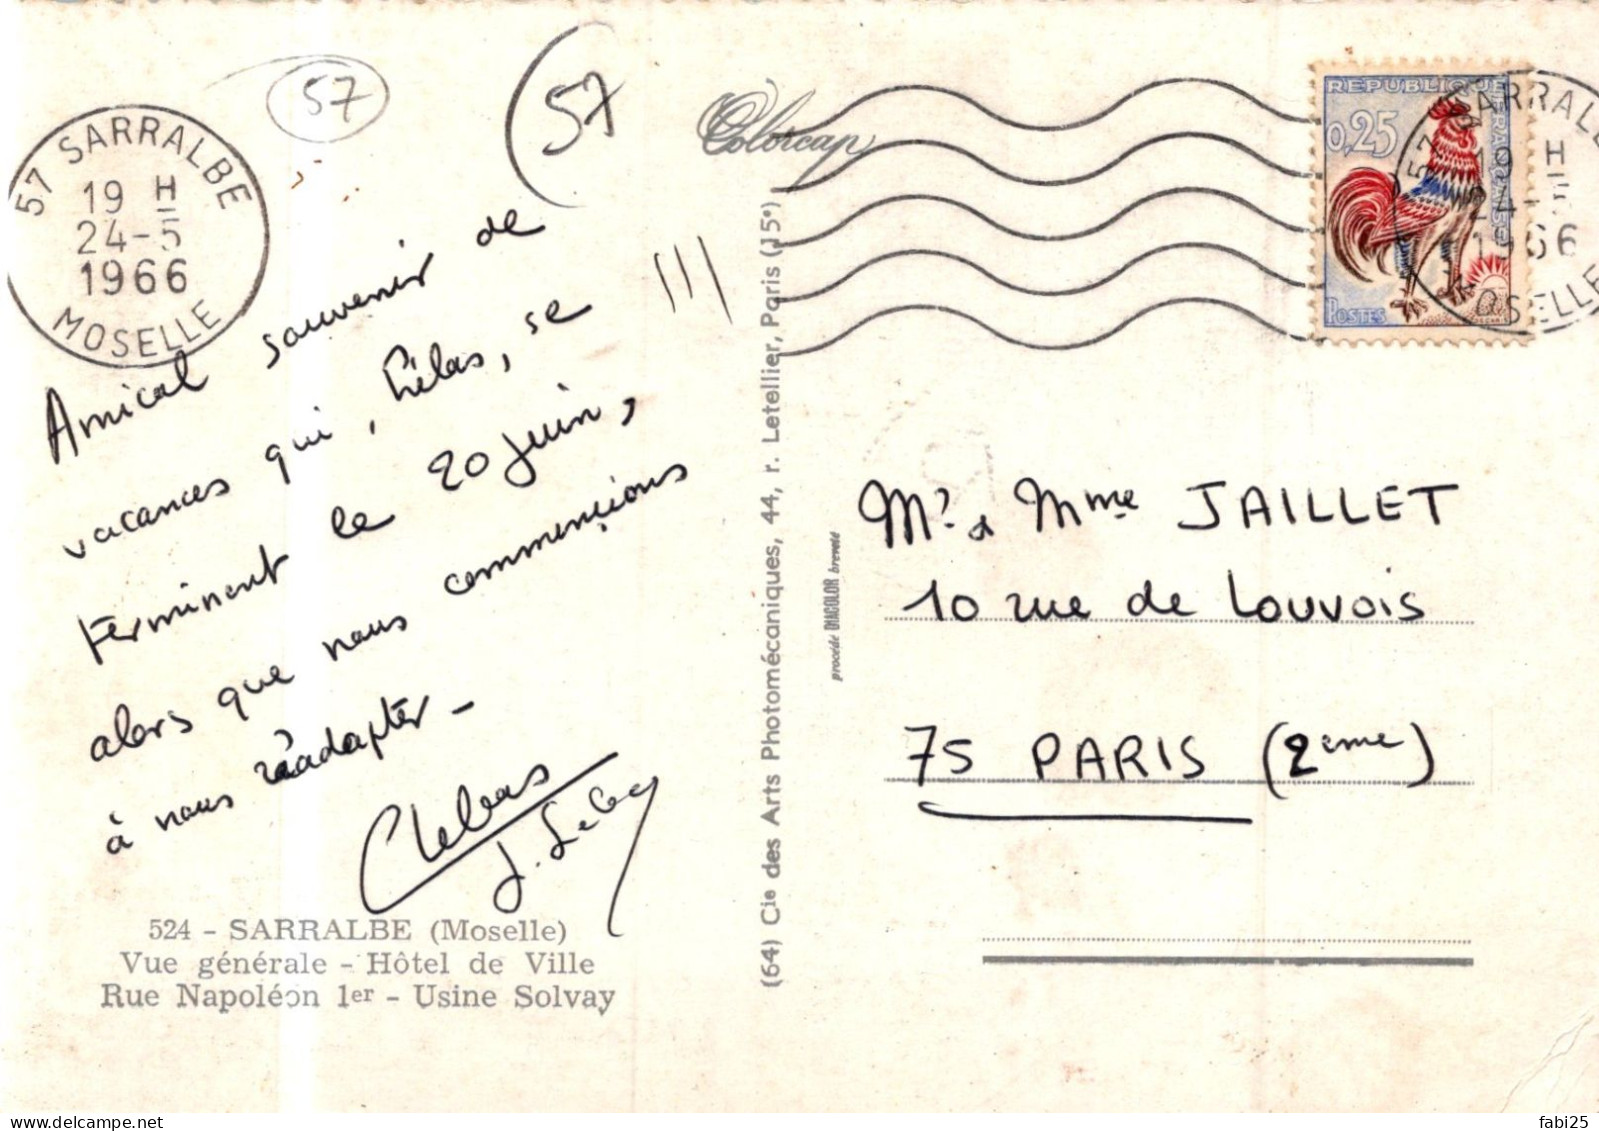 57
57
57 SARRALBE
19 H
24-5
1966
MOSELLE
Amical souvenir de
vacances qui, hélas, se
terminent le 20 juin,
alors que nous commencions
à nous réadapter -
524 - SARRALBE (Moselle)
Vue générale - Hôtel de Ville
Rue Napoléon 1er - Usine Solvay
Colorcap
(64) Cie des Arts Photomécaniques, 44, r. Letellier, Paris (15e)
procédé DIACOLOR breveté
REPUBLIQUE FRANÇAISE
0,25
POSTES
57 SARRALBE
19 H
24-5
1966
MOSELLE
Mr & Mme JAILLET
10 rue de Louvois
75 PARIS (2eme)
fabi25